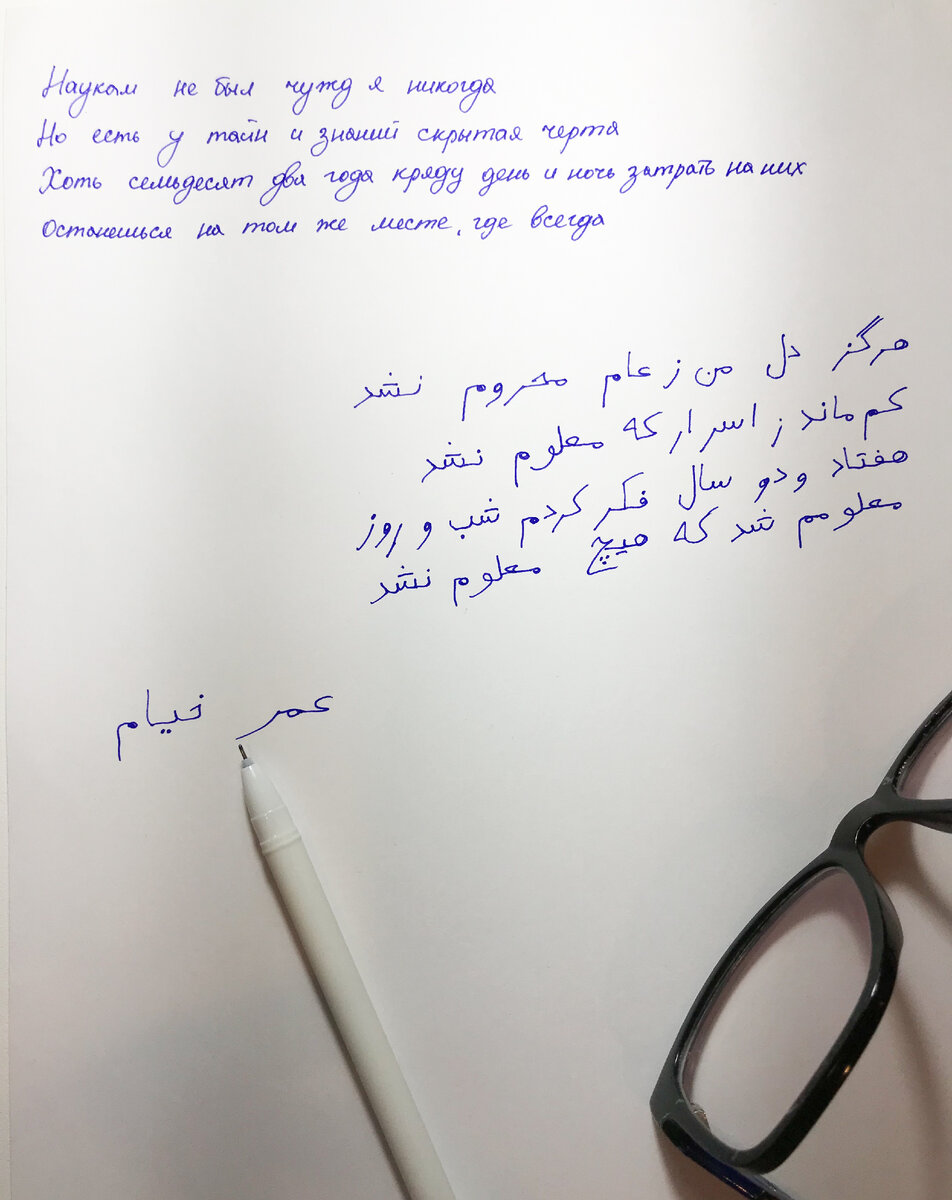 Наукам не был чужд я никогда
Но есть у тайн и знаний скрытая черта
Хоть семьдесят два года кряду день и ночь затрать на них
Останешься на том же месте, где всегда
هرگز دل من ز علم محروم نشد
کم ماند ز اسرار که معلوم نشد
هفتاد و دو سال فکر کردم شب و روز
معلومم شد که هیچ معلوم نشد
عمر خیام